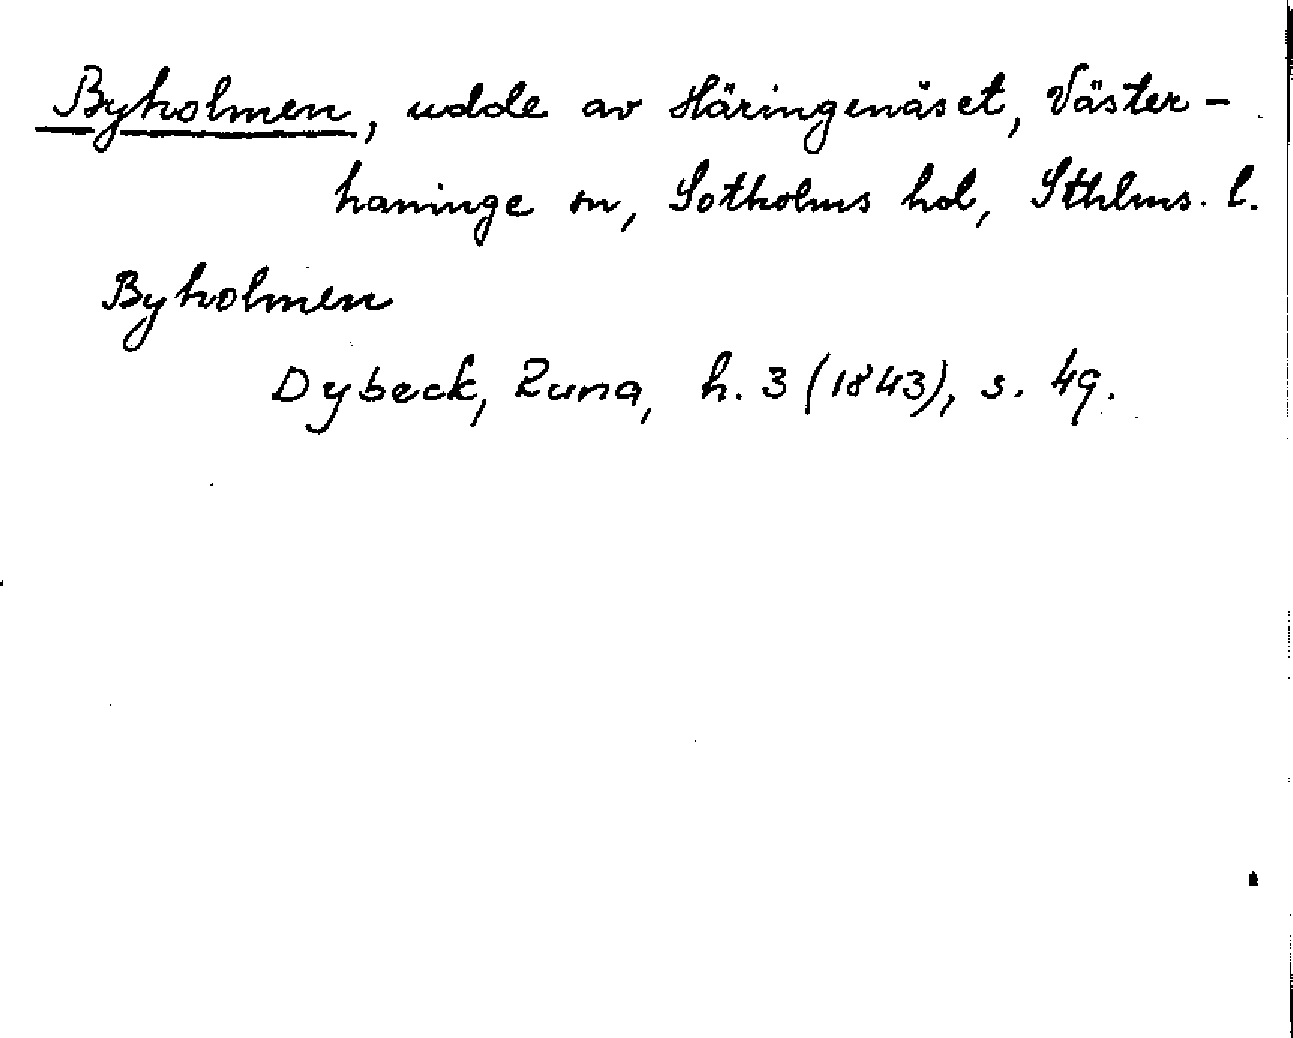 Byholmen, udde av Häringenäset, Väster-
haninge sn, Sotholms hd, Sthlms. l.
Byholmen
Dybeck, Runa, h. 3 (1843), s. 49.